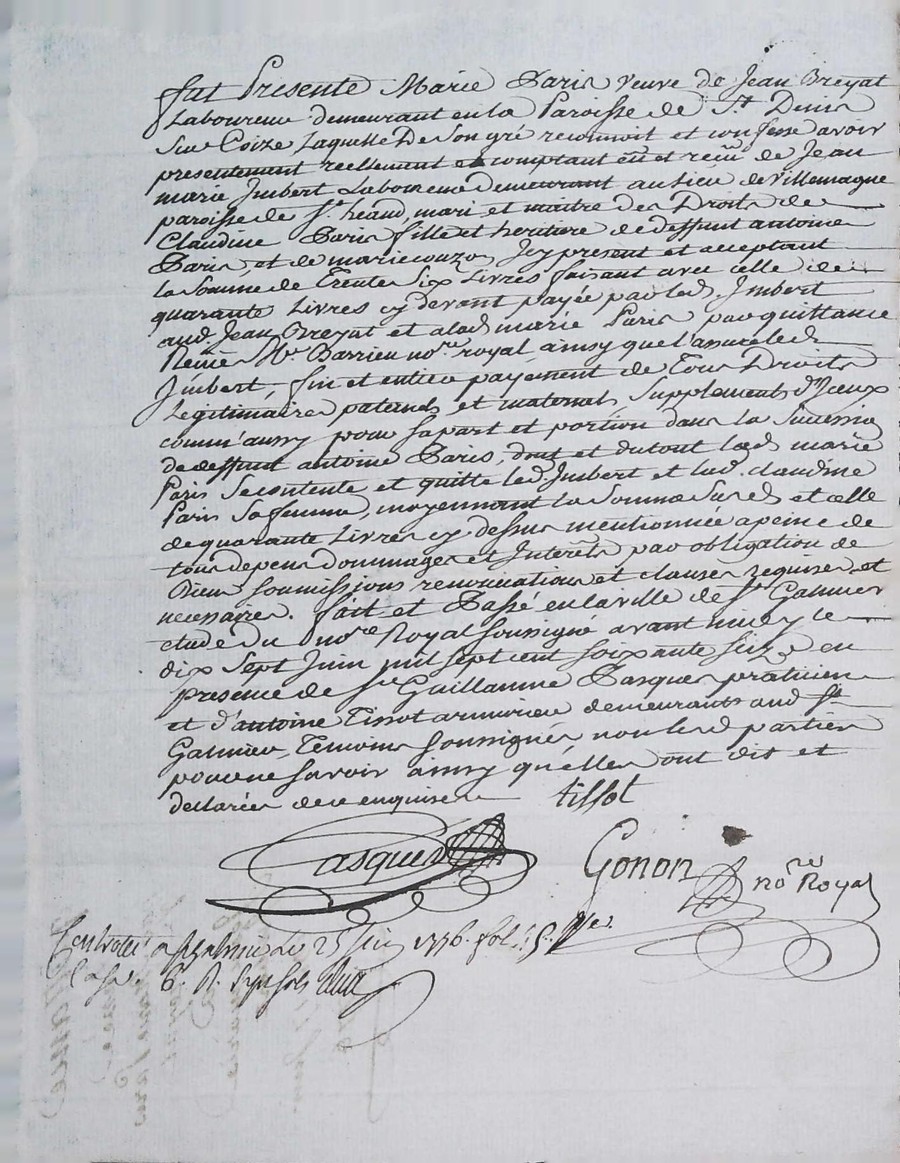 fut Presente Marie Paris veuve de Jean Breyat
Laboureur demeurant en la Paroisse de St. Denis
Sur Coize, Laquelle De Son gré reconnoit et confesse avoir
presentement reellement et comptant eu et recu de Jean
marie Imbert Laboureur Demeurant au lieu de Villemagne
paroisse de St. heand, mari et maitre des Droits de
Claudine Paris fille et heritiere de deffunt antoine
Paris, et de marie couzon Icy present et acceptant
la Somme de Trente Six Livres faisant avec celle de
quarante Livres cy devant payée par led. Imbert
aud. Jean Breyat et alad. marie Paris par quittance
Reüe Me Barrieu nore. royal, ainsy que l'assure led.
Imbert, fin et entier payement de Tous Droits
Legitimaires paternels et maternels, Supplements d'Iceux
comm'aussy pour sa part et portion dans la Succession
de deffunt antoine Paris, dont et du tout lad. marie
Paris Se contente et quitte led. Imbert et lad. claudine
Paris Sa femme, moyennant la Somme Susd. et celle
de quarante Livres cy dessus mentionnée a peine de
tous depens dommages et Interêts par obligation de
Biens Soumissions renonciations et clauses requises et
necessaires. fait et Passé en la ville de St. Galmier
etude du nore. Royal Soussigné avant midy le
dix Sept Juin mil Sept cent Soixante Seize en
presence de Sr. Guillaume Pasques praticien
et d'antoine Tissot armurier demeurants aud. St.
Galmier, Temoins Soussignés non led. parties
pour ne Savoir ainsy qu'elles ont dit et
declarées de ce enquises tissot
Pasques
Gonon nore Royal
Controllé a St galmier le 25 juin 1776. fol.
6. Sols